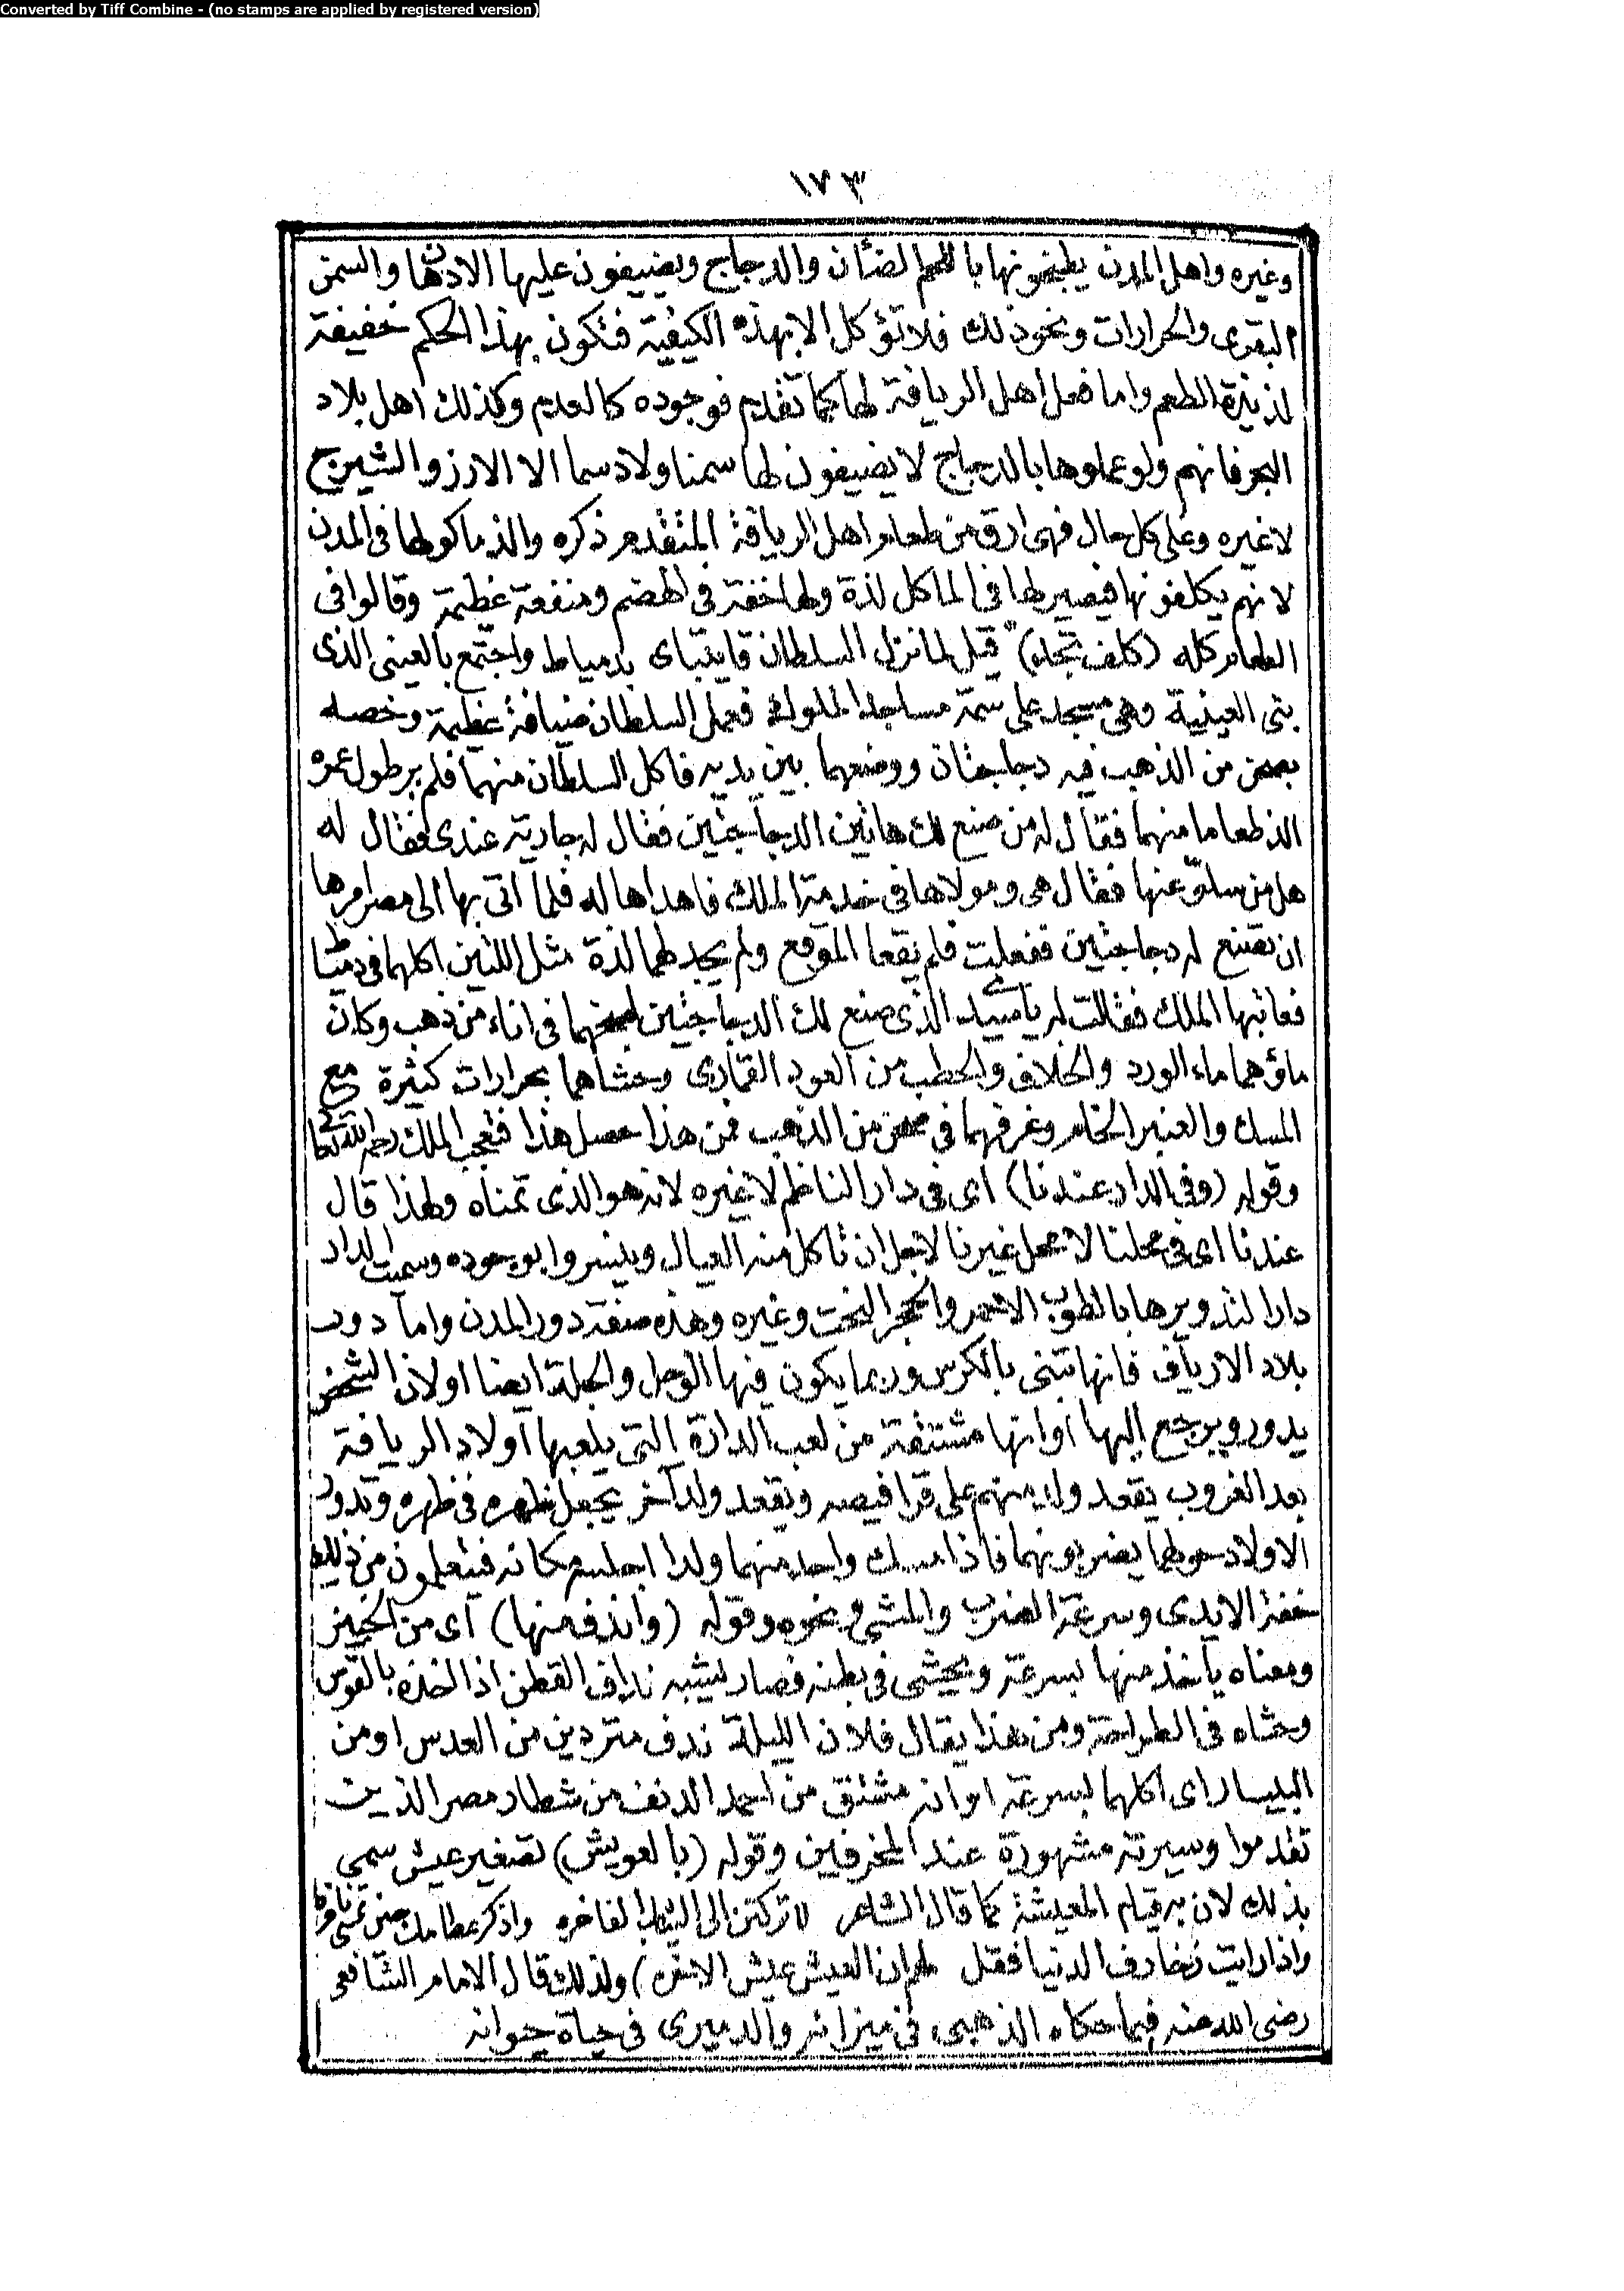 Converted by Tiff Combine - (no stamps are applied by registered version)
١٧٣
وغيره واهل المدن يطبخونها باللحم الضأن والدجاج ويضيفون عليها الادهان والسمن
البقرى والحرارات ونحوذلك فلا تؤكل الا بهذه الكيفية فتكون بهذا الحكم خفيفة
لذيذة الطعم واما فعل اهل الريافة لها كما تقدم فوجوده كالعديم وكذلك اهل بلاد
البحر فانهم ولو عملوها بالدجاج لا يضيفون لها سمنا ولا دسما الا الارز والشيرج
لاغيره وعلى كل حال فهى ارق من طعام اهل الريافة المتقدم ذكره والذ ماكولها فى المدن
لانهم يكلفونها فيصير لها فى الماكل لذة ولها خفة فى الهضم ومنفعة عظيمة وقالوا فى
الطعام كله (كلف تجله) قيل لما نزل السلطان قايتباى بدمياط واجتمع بالعينى الذى
بنى العينية وهى مسجد على سمة مساجد الملوك فعمل السلطان ضيافة عظيمة وخصه
بصحن من الذهب فيه دجاجتان ووضعهما بين يديه فاكل السلطان منهما فلم ير طول عمره
الذ طعاما منهما فقال له من صنع لك هاتين الدجاجتين فقال له جارية عندى فقال له
هل من سلوّ عنها فقال هى ومولاها فى خدمة الملك فاهداها له فلما اتى بها الى مصر امرها
ان تصنع له دجاجتين ففعلت فلم يقعا الموقع ولم يجد لهما لذة مثل اللتين اكلهما فى دمياط
فعاتبها الملك فقالت له يا سيدى الذى صنع لك الدجاجتين طبخهما فى اناء من ذهب وكان
ماؤهما ماء الورد والخلاف والحطب من العود القمارى وحشاهما بحرارات كثيرة مع
المسك والعنبر الخام وغرفهما فى صحن من الذهب فمن هذا حصل هذا فتعجب الملك رحمه الله تعالى
وقوله (وفى الدار عندنا) اى فى دار الناظم لا غيره لانه هو الذى تمناه ولهذا قال
عندنا اى فى محلنا لا محل غيرنا لاجل ان تاكل منه العيال وينسروا بوجوده وسميت الدار
دارا لتدويرها بالطوب الاحمر والحجر النحت وغيره وهذه صفة دور المدن واما دور
بلاد الارياف فانها تبنى بالكرس وربما يكون فيها الوحل والجلة ايضا اولان الشخص
يدور ويرجع اليها اوانها مشتقة من لعب الدارة التى يلعبها اولاد الريافة
بعد الغروب يقعد ولد منهم على قرافيصه ويقعد ولد آخر يجعل ظهره فى ظهره وتدور
الاولاد حولهما يضربونهما فاذا مسك واحد منهما ولدا اجلسه مكانه فيتعلمون من ذلك
خفة الايدى وسرعة الضرب والمشى ونحوه وقوله (واندف منها) اى من الخبيز
ومعناه يأخذ منها بسرعة ويحشى فى بطنه فصار يشبه نداف القطن اذا اخذه بالقوس
وحشاه فى الطراحة ومن هذا يقال فلان الليلة ندف متردين من العدس او من
البيسار اى اكلهما بسرعة اوانه مشتق من احمد الدنف من شطار مصر الذين
تقدموا وسيرته مشهورة عند المخرفين وقوله (بالعويش) تصغير عيش سمى
بذلك لان به قيام المعيشة كما قال الشاعر لا تركنن الى الثياب الفاخره واذكر عظامك حين تمسى ناخره
واذا رايت زخارف الدنيا فقل لهم ان العيش عيش الاخره) ولذلك قال الامام الشافعى
رضى الله عنه فيما حكاه الذهبى فى ميزانه والدميرى فى حياة حيوانه